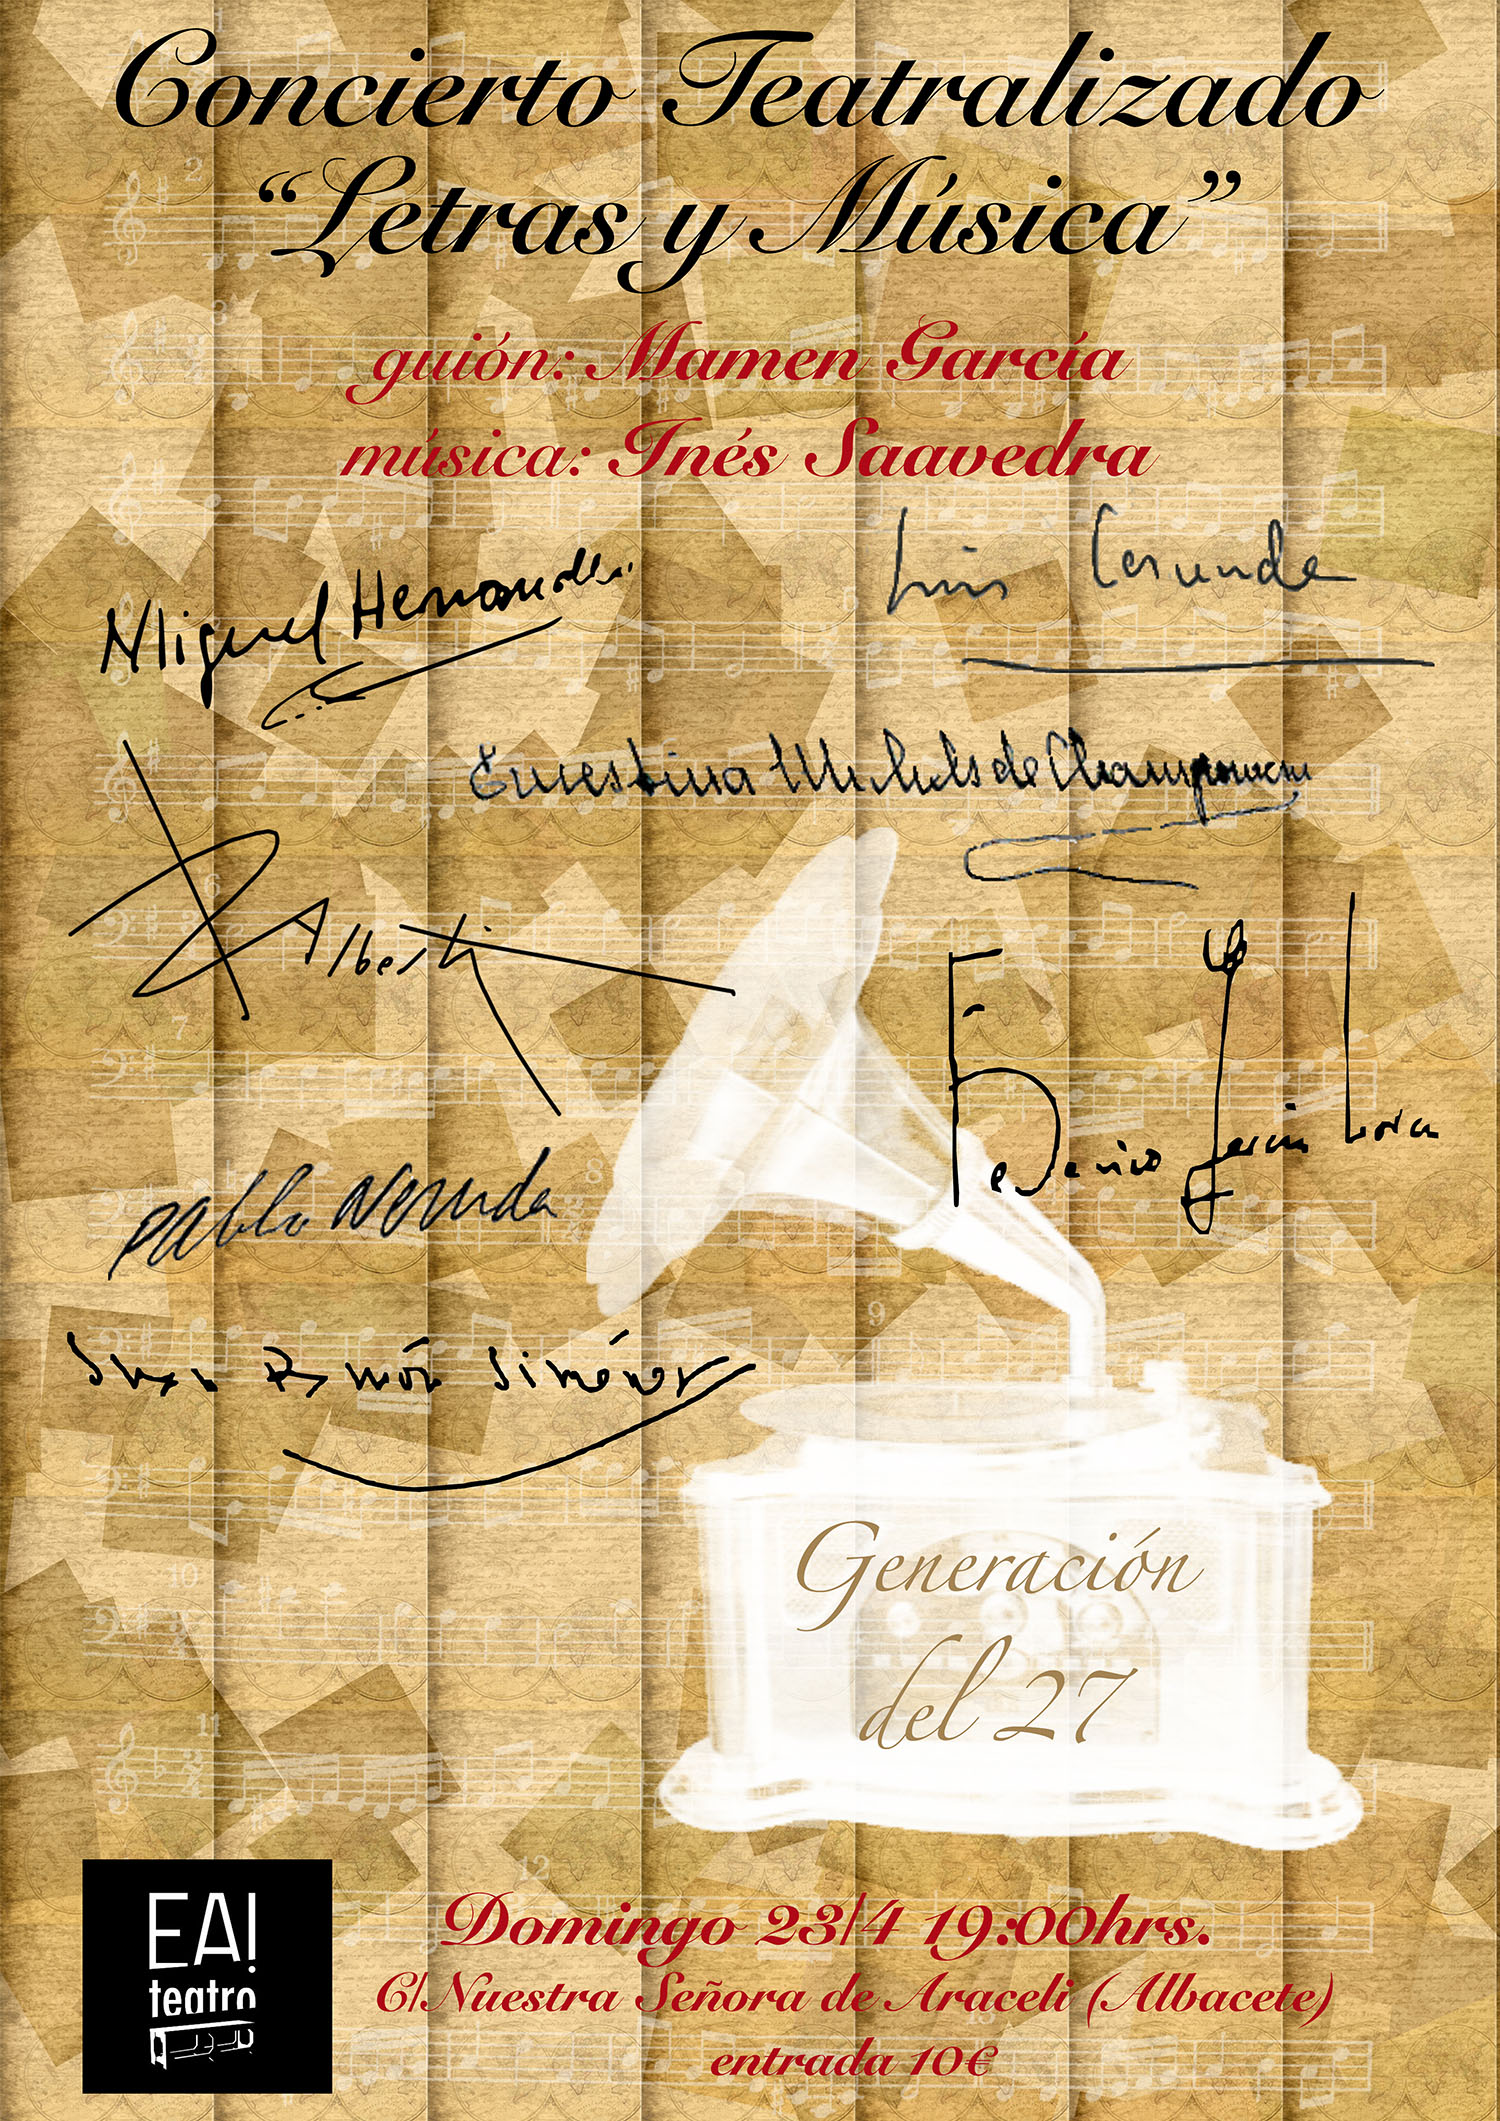 Concierto Teatralizado
“Letras y Música”
guión: Mamen García
música: Inés Saavedra
Miguel Hernández
Luis Cernuda
Ernestina Michels de Champourcin
R Alberti
Federico García Lorca
Pablo Neruda
Juan Ramón Jiménez
Generación
del 27
EA!
teatro
Domingo 23/4 19:00hrs.
C/Nuestra Señora de Araceli (Albacete)
entrada 10€
2
3
6
7
8
9
10
11
12
13